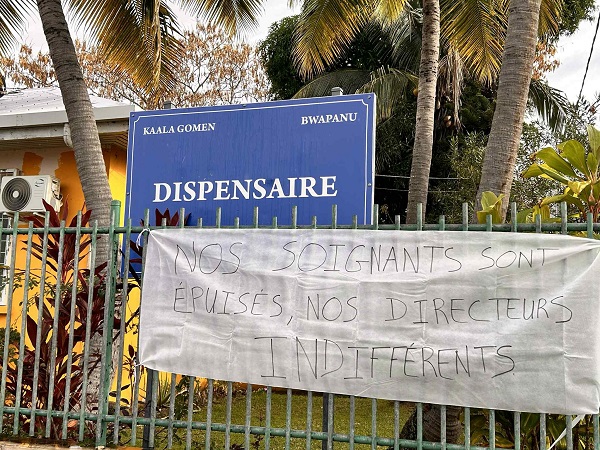 KAALA GOMEN BWAPANU
DISPENSAIRE
NOS SOIGNANTS SONT
ÉPUISÉS, NOS DIRECTEURS
INDIFFÉRENTS